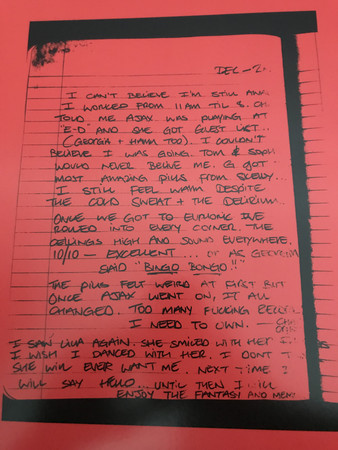 DEC - 2
I CAN'T BELIEVE I'M STILL
I WORKED FROM 11AM TIL 8. CH
TOLD ME AJAX WAS PLAYING AT
"E-D" AND SHE GOT GUEST LIST..
(GEORGIA + HAMM TOO). I COULDN'T
BELIEVE I WAS GOING. TOM &
WOULD NEVER BELIVE ME. G GOT
MOST AMAZING PILLS FROM
I STILL FEEL WARM DESPITE
THE COLD SWEAT + THE DELIRIUM..
ONCE WE GOT TO EUPHORIC I'VE
ROLLED INTO EVERY CORNER. THE
CEILINGS HIGH AND SOUND EVERYWHERE.
10/10 - EXCELLENT... OR AS GEORGIA
SAID "BINGO BONGO!!"
THE PILLS FELT WEIRD AT FIRST BUT
ONCE AJAX WENT ON, IT ALL
CHANGED. TOO MANY FUCKING
I NEED TO OWN.
I SAW LILLA AGAIN. SHE SMILED WITH HER
I WISH I DANCED WITH HER. I DONT T
SHE WILL EVER WANT ME. NEXT TIME
WILL SAY HELLO... UNTIL THEN I
ENJOY THE FANTASY AND